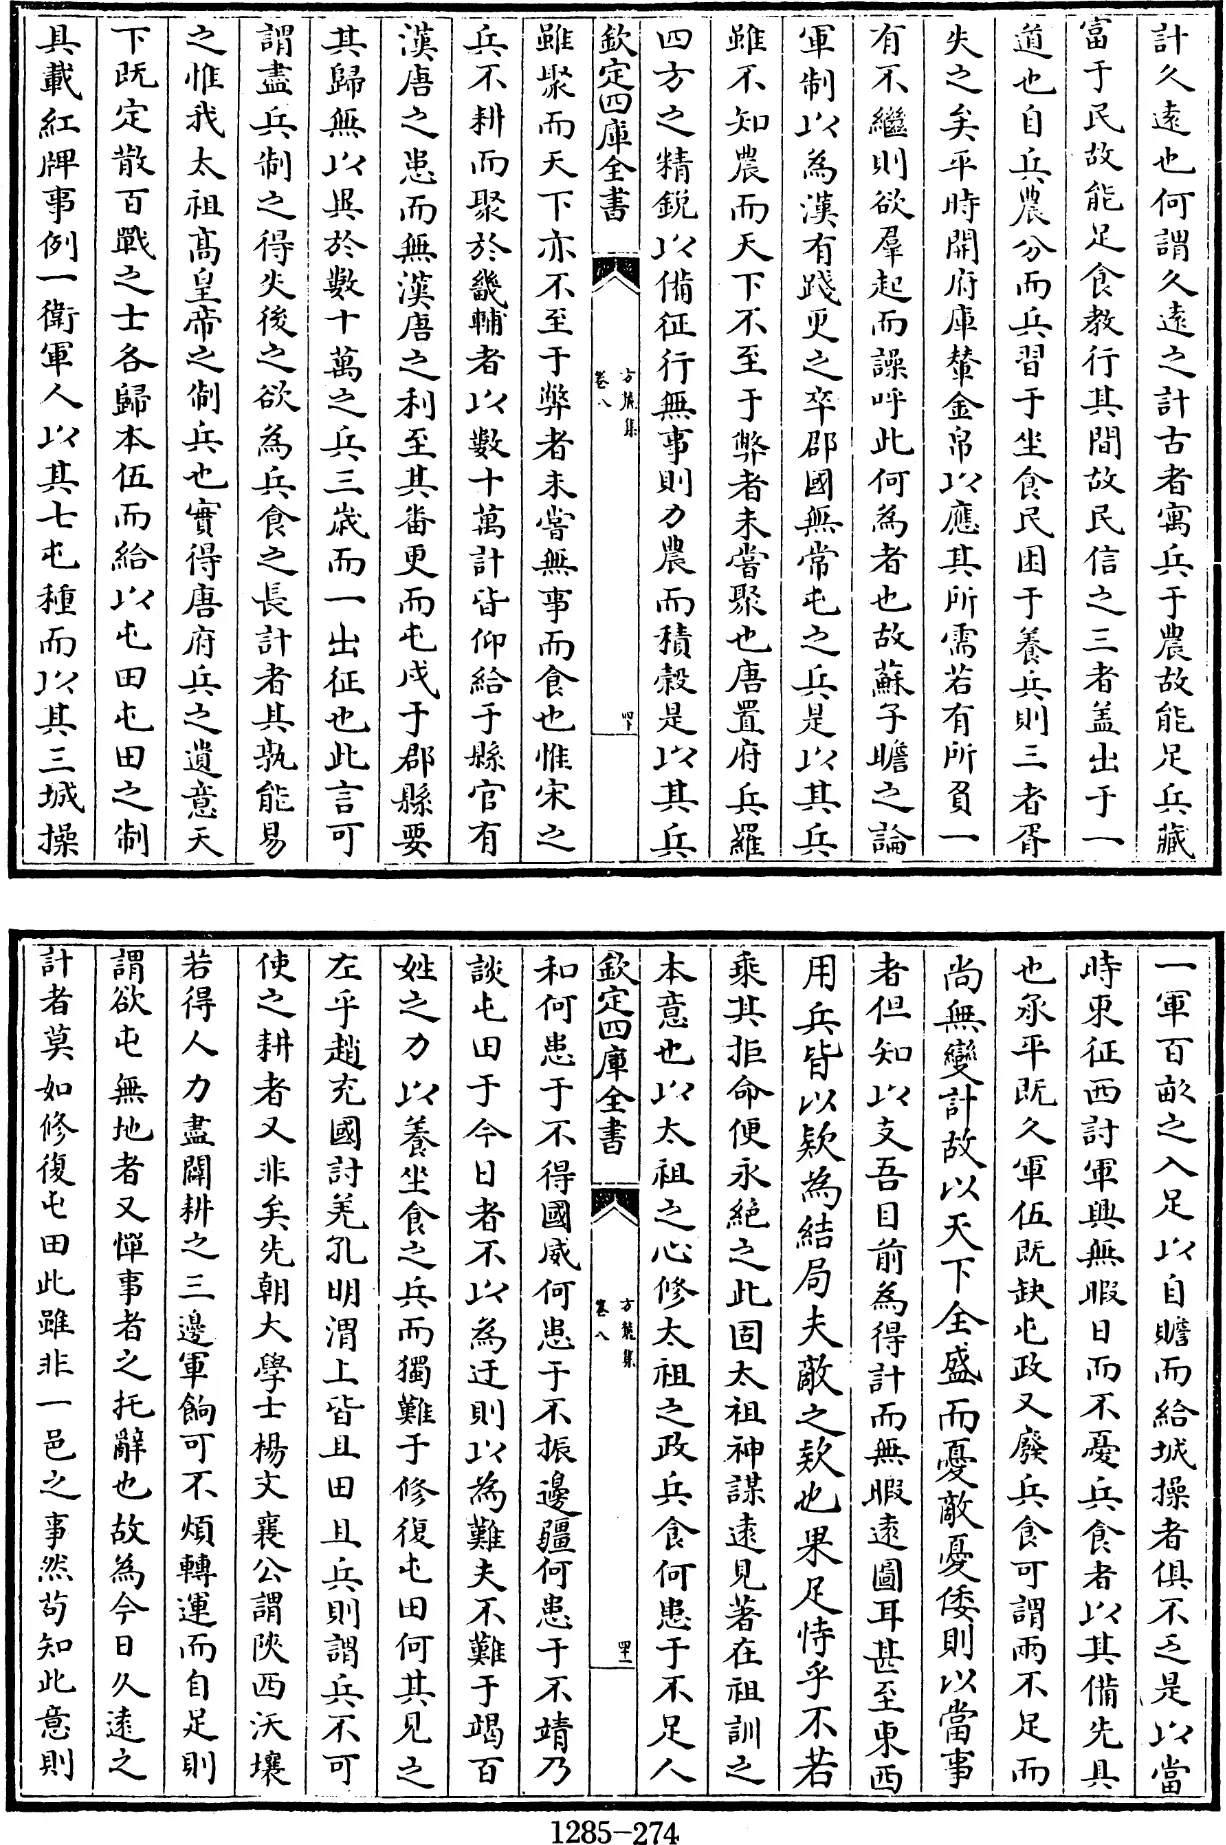 計久遠也何謂久遠之計古者寓兵于農故能足兵藏
富于民故能足食教行其間故民信之三者盖出于一
道也自兵農分而兵習于坐食民困于養兵則三者胥
失之矣平時開府庫輦金帛以應其所需若有所負一
有不繼則欲羣起而譟呼此何為者也故蘇子瞻之論
軍制以為漢有踐更之卒郡國無常屯之兵是以其兵
雖不知農而天下不至于弊者未嘗聚也唐置府兵羅
四方之精鋭以備征行無事則力農而積穀是以其兵
欽定四庫全書
方麓集
卷八
四十
雖聚而天下亦不至于弊者未嘗無事而食也惟宋之
兵不耕而聚於畿輔者以數十萬計皆仰給于縣官有
漢唐之患而無漢唐之利至其畨更而屯戍于郡縣要
其歸無以異於數十萬之兵三歳而一出征也此言可
謂盡兵制之得失後之欲為兵食之長計者其孰能易
之惟我太祖髙皇帝之制兵也實得唐府兵之遺意天
下既定散百戰之士各歸本伍而給以屯田屯田之制
具載紅牌事例一衛軍人以其七屯種而以其三城操
一軍百畝之入足以自贍而給城操者俱不乏是以當
時東征西討軍興無暇日而不憂兵食者以其備先具
也承平既久軍伍既缺屯政又廢兵食可謂兩不足而
尚無變計故以天下全盛而憂敵憂倭則以當事
者但知以支吾目前為得計而無暇遠圖耳甚至東西
用兵皆以欵為結局夫敵之欵也果足恃乎不若
乘其拒命便永絶之此固太祖神謀遠見著在祖訓之
本意也以太祖之心修太祖之政兵食何患于不足人
欽定四庫全書
方麓集
卷八
四十一
和何患于不得國威何患于不振邊疆何患于不靖乃
談屯田于今日者不以為迂則以為難夫不難于竭百
姓之力以養坐食之兵而獨難于修復屯田何其見之
左乎趙充國討羌孔明渭上皆且田且兵則謂兵不可
使之耕者又非矣先朝大學士楊文襄公謂陝西沃壤
若得人力盡闢耕之三邊軍餉可不煩轉運而自足則
謂欲屯無地者又憚事者之托辭也故為今日久遠之
計者莫如修復屯田此雖非一邑之事然茍知此意則
1285-274